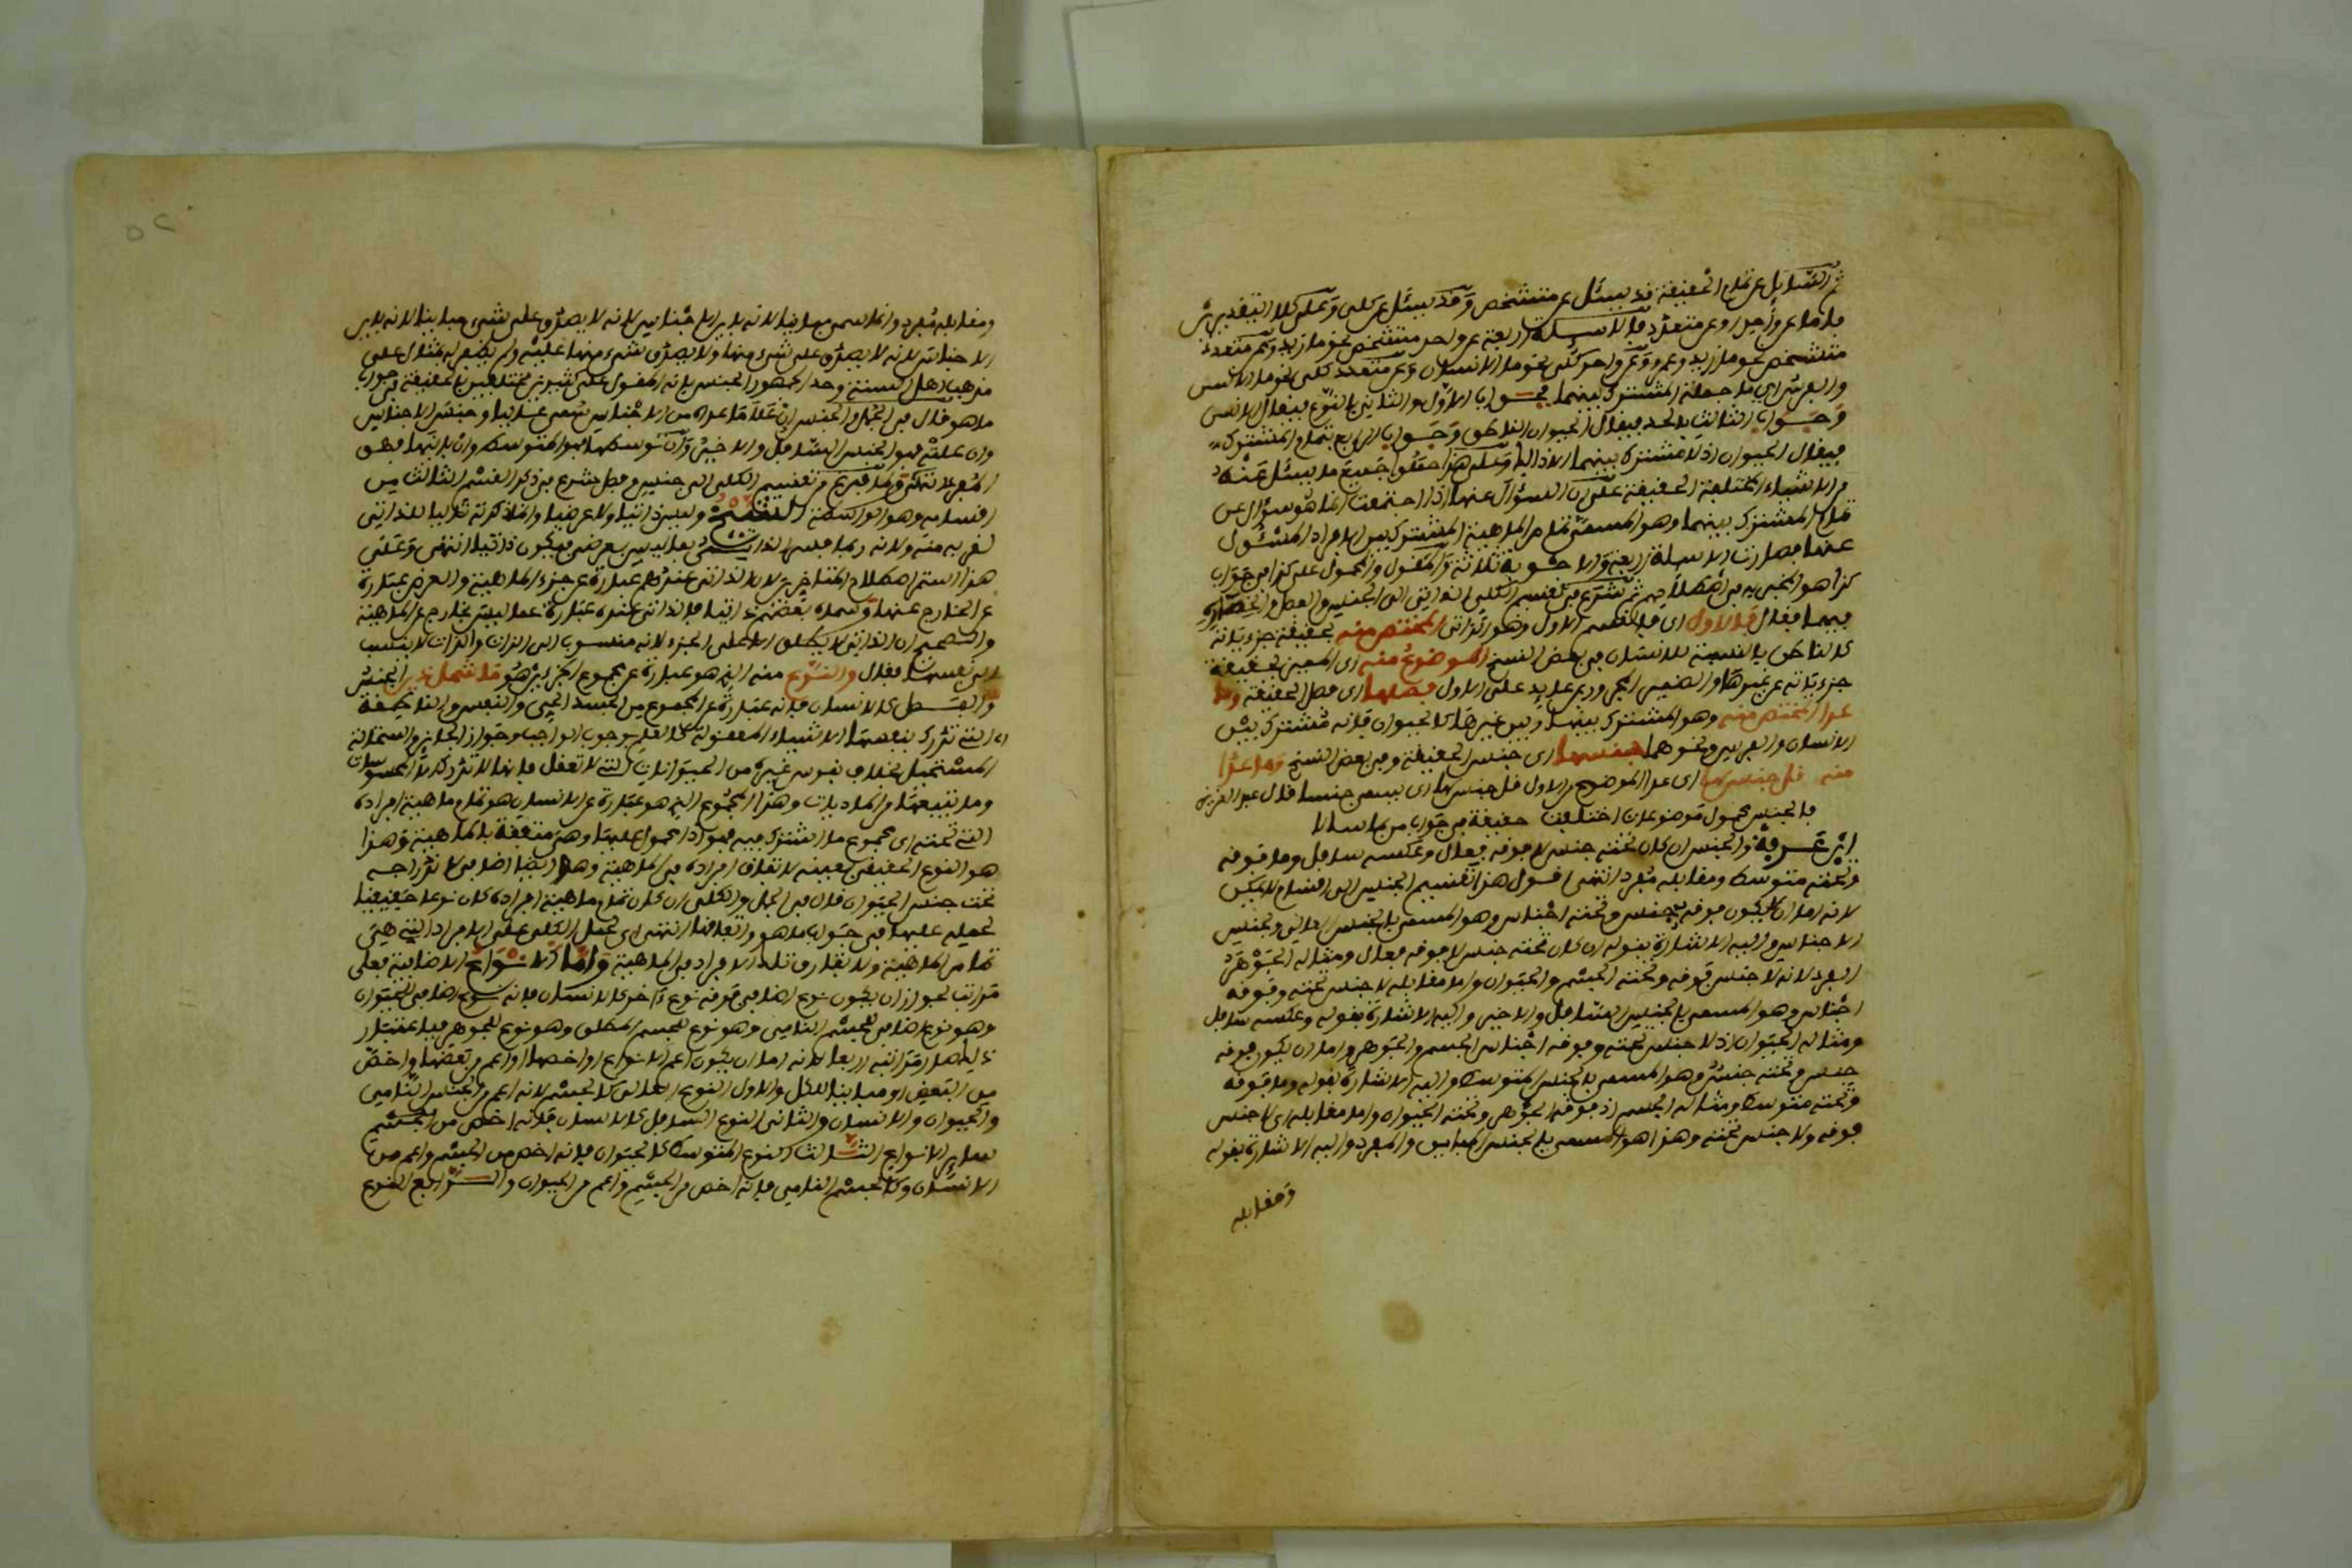 ثم السائل عن تمام الحقيقة قد يسئل عن متشخص وقد يسئل عن كلي وعلى كلا التقديرين
فاما عن واحد او عن متعدد فالاسئلة اربعة عن واحد متشخص نحو ما زيد وعن متعدد
متشخص نحو ما زيد وعمرو وعن واحد كلي نحو ما الانسان وعن متعدد كلي نحو ما الانس
والفرس اي ما حملة المشترك بينهما فجواب الاول والثاني بالنوع فيقال الانس
وجواب الثالث بالحد فيقال الحيوان الناطق وجواب الرابع بتمام المشترك
فيقال الحيوان اذ لا مشتركا بينهما الا ذاك وعلى هذا جميع ما يسئل عنه
من الاشياء المختلفة الحقيقة على ان السؤال عنها اذا اجتمعت انما هو سؤال عن
تمام المشترك بينهما وهو المسمى تمام الماهية المشترك بين الافراد المسئول
عنها فصارت الاسئلة اربعة والاجوبة ثلاثة والمقول والمحمول على كذا في جواب
كذا هو المخبر به في اصطلاحهم ثم شرع في تقسيم الكلي الذاتي الى الجنس والفصل والنوع
فيها فقال فالاول اي فالقسم الاول وهو الذاتي المختص منه بحقيقة جزءياته
كالناطق بالنسبة للانسان في بعض النسخ الموضوع منه اي المعين بحقيقة
جزءياته عن غيرها والضمير المجرور عايد على الاول فصلها اي فصل الحقيقة وما
عدا المختص منه وهو المشترك بينها وبين غيرها كالحيوان فانه مشترك بين
الانسان والفرس ونحوهما جنسها اي جنس الحقيقة وفي بعض النسخ وما عدا
منه قل جنس سما اي عدا الموضوع من الاول قل جنس سما اي يسمى جنسا قال عبد العزيز
فالجنس محمول موضوعات اختلفت حقيقة في جواب من بما سالا
ابن عرفة والجنس ان كان تحته جنس لا فوقه فعال وعكسه سافل وما فوقه
وتحته متوسط ومقابله مفرد انتهى اقول هذا تقسيم الجنس الى اقسام للجنس
لانه اما ان يكون فوقه جنس وتحته اجناس وهو المسمى بالجنس العالي وبجنس
الاجناس واليه الاشارة بقوله ان كان تحته جنس لا فوقه فعال ومثاله الجوهر
الفرد لانه لا جنس فوقه وتحته الجسم والحيوان واما مقابله لا جنس تحته وفوقه
اجناس وهو المسمى بالجنس السافل والاخير واليه الاشارة بقوله وعكسه سافل
ومثاله الحيوان اذ لا جنس تحته وفوقه اجناس الجسم والجوهر واما ان يكون فوقه
جنس وتحته جنس وهو المسمى بالجنس المتوسط واليه الاشارة بقوله وما فوقه
وتحته متوسط ومثاله الجسم اذ فوقه الجوهر وتحته الحيوان واما مقابله اي لا جنس
فوقه ولا جنس تحته وهذا هو المسمى بالجنس المباين والمفرد واليه الاشارة بقوله
ومقابله
ومقابله مفرد وانما سمي مباينا لانه باين الاجناس لانه لا يصدق على شيء مباينا لانه باين
الاجناس لانه لا يصدق على شيء منها ولا يصدق شيء منها عليه ولم يقع له مثال على
مذهب اهل السنة وحد الجمهور الجنس بانه المقول على كثيرين مختلفين بالحقيقة في جواب
ما هو قال في الجمل والجنس ان علا ما عداه من الاجناس سمي عاليا وجنس الاجناس
وان علته فهو الجنس السافل والاخير وان توسطها فهو المتوسط وان باينها فهو
المفرد انتهى ولما فرغ من تقسيم الكلي الى جنس وفصل شرع في ذكر القسم الثالث من
اقسامه وهو الواسطة وليس ذاتيا ولا عرضيا وانما ذكرته تاليا للذاتي
لقربه منه ولانه ربما فسر الذاتي بما ليس بعرضي فيكون ذاتيا انتهى وعلى
هذا استمر اصطلاح المتاخرين لان الذاتي عندهم عبارة عن جزء الماهية والعرض عبارة
عن الخارج عنها وسماه بعضهم ذاتيا فالذاتي عنده عبارة عما ليس بخارج عن الماهية
والصحيح ان الذاتي لا يطلق الا على الجزء لانه منسوب الى الذات والذات لا ينسب
الى نفسها فقال والنوع منه الذي هو عبارة عن مجموع الجزءين هو ما شمل ذين الجنس
والفصل كالانسان فانه عبارة عن المجموع من الجسد الحي والنفس الناطقة
اي التي تدرك بنفسها الاشياء المعقولة كالعلم بوجوب الواجب وجواز الجايز واستحالة
المستحيل بخلاف نفوس غيره من الحيوانات التي لا تعقل فانها لا تدرك الا المحسوسات
وما يتبعها من الماديات وهذا المجموع الذي هو عبارة عن الانسان هو تمام ماهية افراده
التي تحته اي مجموع ما اشترك فيه فهو اذا محمول عليها وهي متفقة بالماهية وهذا
هو النوع الحقيقي بعينه لاتفاق افراده في الماهية وهذا ايضا اضافي لاندراجه
تحت جنس الحيوان قال في الجمل والكلي ان كان تمام ماهية افراده كان نوعا حقيقيا
لحمله عليها في جواب ما هو واتفاقها انتهى اي لحمل الكلي على الافراد التي هي
تمام الماهية ولاتفاق تلك الافراد في الماهية واما الانواع الاضافية فعلى
مراتب لجواز ان يكون نوع اضافي فوقه نوع ءاخر كالانسان فانه نوع اضافي للحيوان
وهو نوع اضافي للجسم النامي وهو نوع للجسم المطلق وهو نوع للجوهر فباعتبار
ذلك مراتبه اربعا لانه اما ان يكون اعم الانواع او اخصها او اعم من بعضها واخص
من البعض او مباينا للكل والاول النوع العالي كالجسم لانه اعم من الجسم النامي
والحيوان والانسان والثاني النوع السافل كالانسان فانه اخص من الجسم
ساير الانواع الثالث النوع المتوسط كالحيوان فانه اخص من الجسم واعم من
الانسان وكالجسم النامي فانه اخص من الجسم واعم من الحيوان والرابع النوع